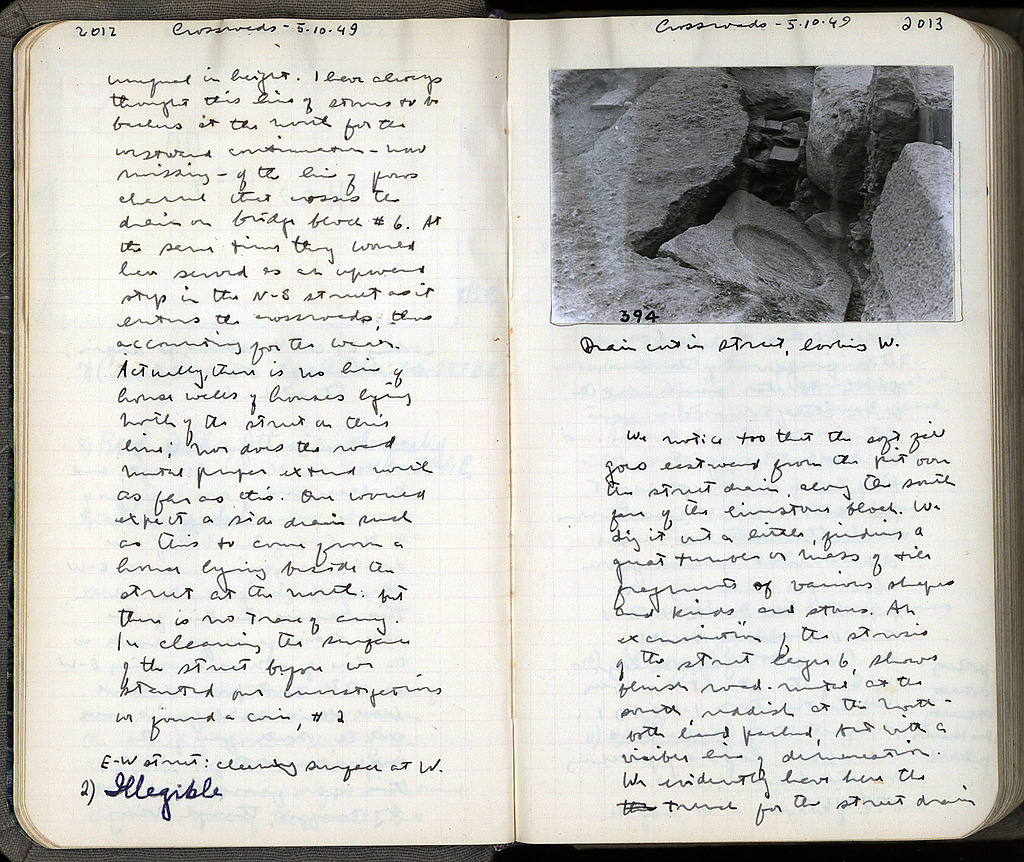 2012 Crossroads - 5.10.49
unequal in height. I have always
thought this line of stones to be
at the north for the
westward continuation - now
missing - of the line of poros
channel that crosses the
drain on bridge block #6. At
the same time they would
have served as an upward
step in the N-S street as it
enters the crossroads, thus
accounting for the wear.
Actually, there is no line of
house walls of houses lying
north of the street on this
line, nor does the road
metal proper extend north
as far as this. One would
expect a side drain such
as this to come from a
house lying beside the
street at the north: but
there is no trace of any.
In cleaning the surface
of the street before we
started our investigations
we found a coin #2
E-W street: cleaning surface at W.
2) Illegible
Crossroads - 5.10.49 2013
394
Drain cut in street, looking W.
We notice too that the soft fill
goes eastward from the pit over
the street drain, along the south
face of the limestone block. We
dig it out a little, finding a
great number or mass of tile
fragments of various shapes
and kinds and stones. An
examination of the strosis
of the street layer 6, shows
blueish road-metal at the
south, reddish at the north -
both hard packed, but with a
visible line of demarcation.
We evidently have here the
trench for the street drain